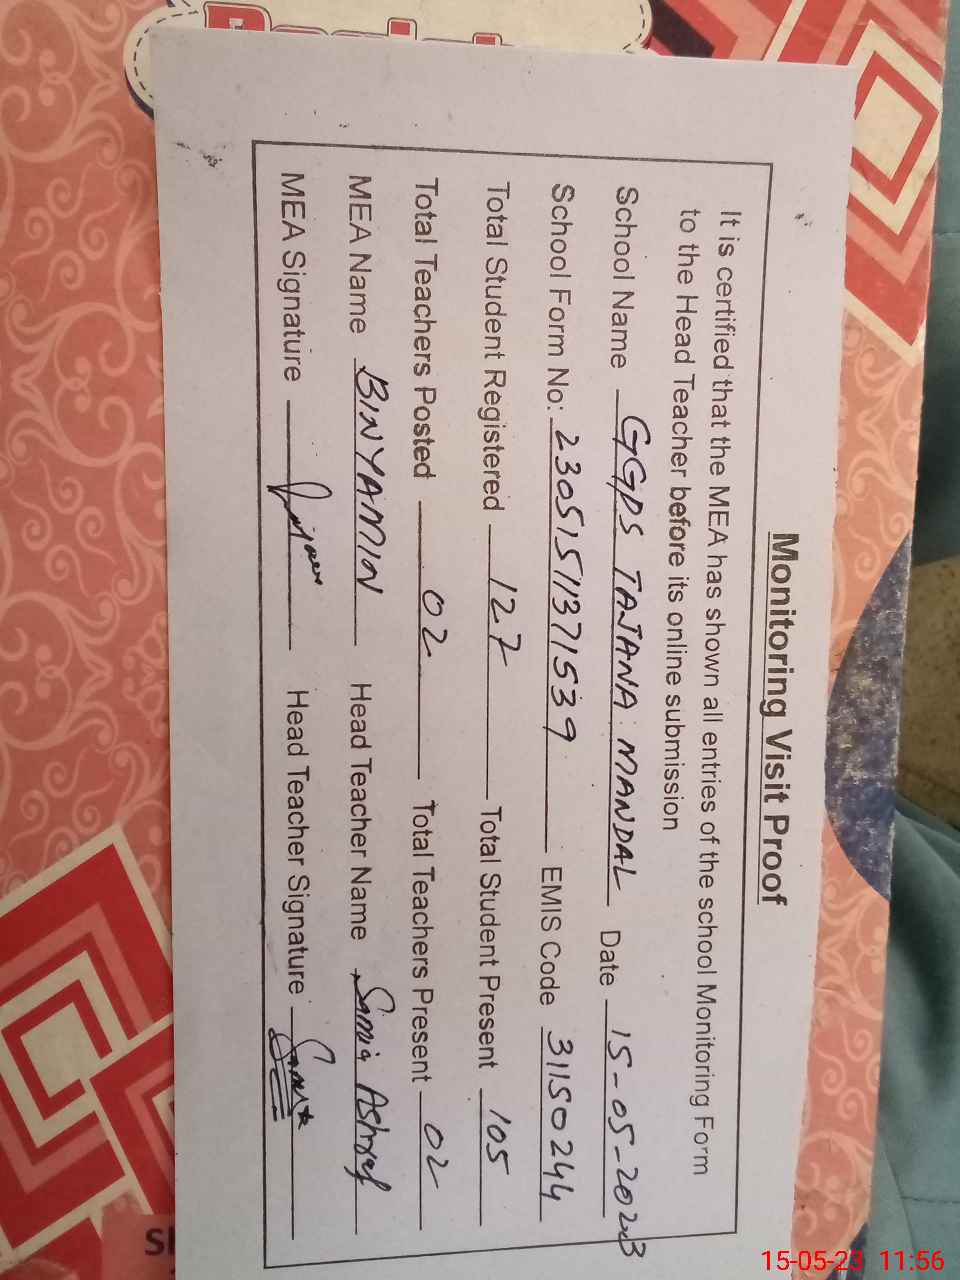 Monitoring Visit Proof
It is certified that the MEA has shown all entries of the school Monitoring Form
to the Head Teacher before its online submission
School Name GGPS TAJANA MANDAL Date 15-05-2023
School Form No: 23051511371539 EMIS Code 31150244
Total Student Registered 127 Total Student Present 105
Total Teachers Posted 02 Total Teachers Present 02
MEA Name BINYAMIN Head Teacher Name Samia Ashraf
MEA Signature Head Teacher Signature
15-05-23 11:56